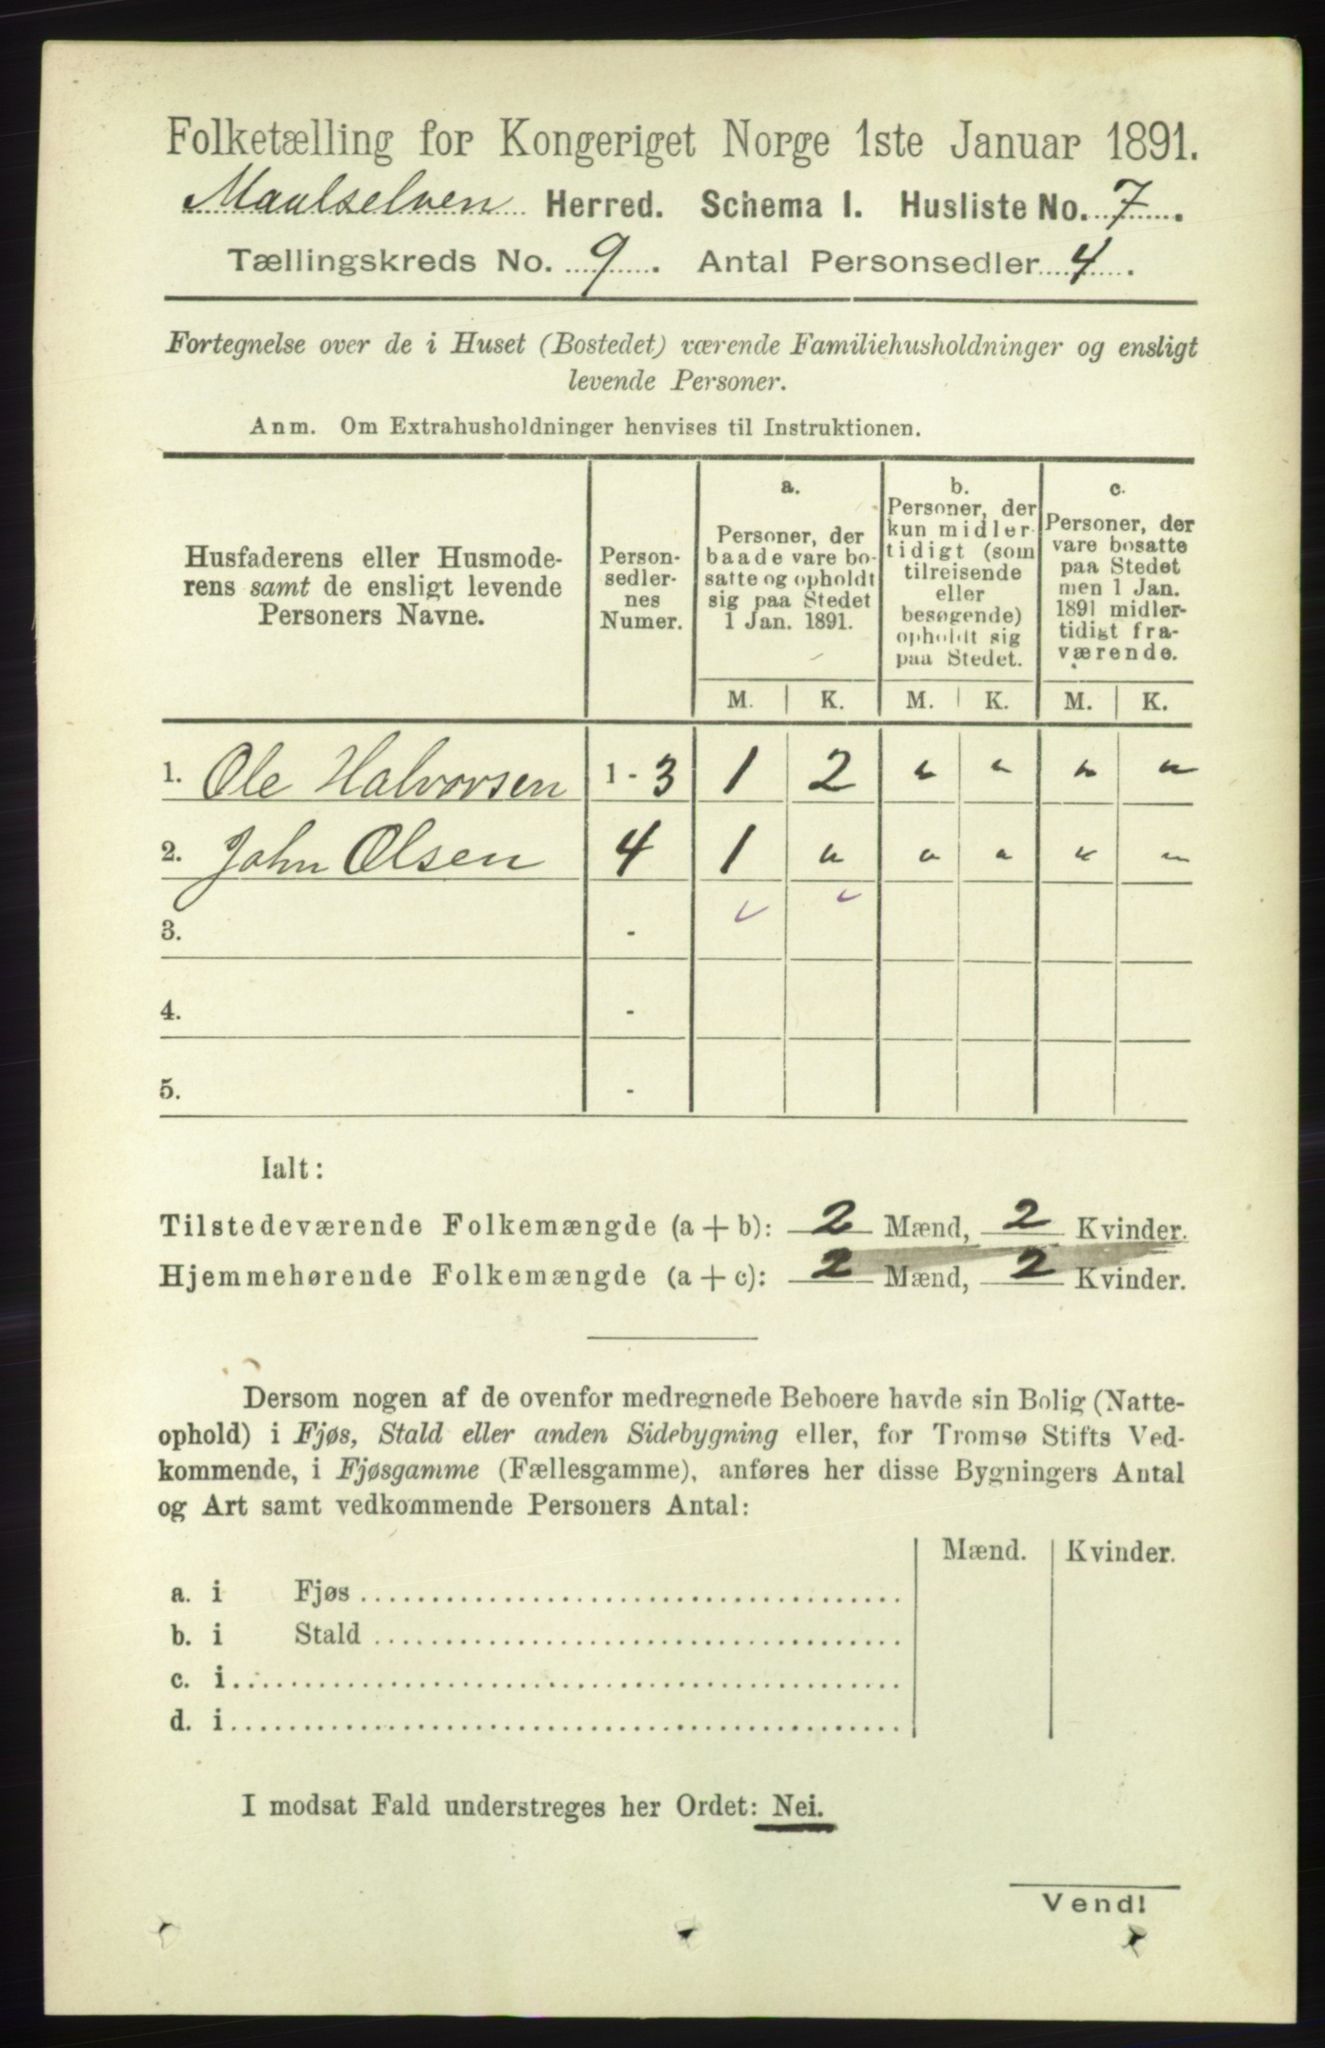 Folketælling for Kongeriget Norge 1ste Januar 1891.
Maalselven Herred. Schema I. Husliste No. 7.
Tællingskreds No. 9. Antal Personsedler 4.
Fortegnelse over de i Huset (Bostedet) værende Familiehusholdninger og ensligt
levende Personer.
Anm. Om Extrahusholdninger henvises til Instruktionen.
Husfaderens eller Husmode-
rens samt de ensligt levende
Personers Navne.
Person-
sedler-
nes
Numer.
a.
Personer, der
baade vare bo-
satte og opholdt
sig paa Stedet
1 Jan. 1891.
b.
Personer, der
kun midler-
tidigt (som
tilreisende
eller
besøgende)
opholdt sig
paa Stedet.
c.
Personer, der
vare bosatte
paa Stedet
men 1 Jan.
1891 midler-
tidigt fra-
værende.
M. K. M. K. M. K.
1. Ole Halvorsen 1 - 3 1 2 " " " "
2. John Olsen 4 1 " " " " "
3. -
4. -
5. -
Ialt:
Tilstedeværende Folkemængde (a + b): 2 Mænd, 2 Kvinder.
Hjemmehørende Folkemængde (a + c): 2 Mænd, 2 Kvinder.
Dersom nogen af de ovenfor medregnede Beboere havde sin Bolig (Natte-
ophold) i Fjøs, Stald eller anden Sidebygning eller, for Tromsø Stifts Ved-
kommende, i Fjøsgamme (Fællesgamme), anføres her disse Bygningers Antal
og Art samt vedkommende Personers Antal:
Mænd. Kvinder.
a. i Fjøs
b. i Stald
c. i
d. i
I modsat Fald understreges her Ordet: Nei.
Vend!